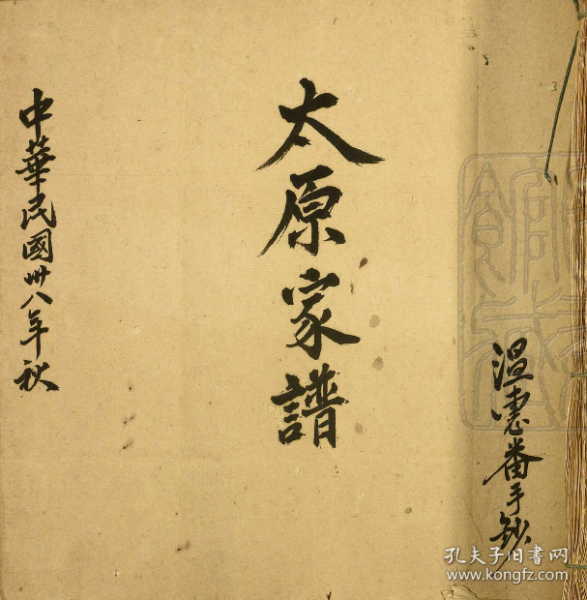 太原家譜
中華民國卅八年秋
温憲番手鈔
孔夫子旧书网
www.kongfz.com